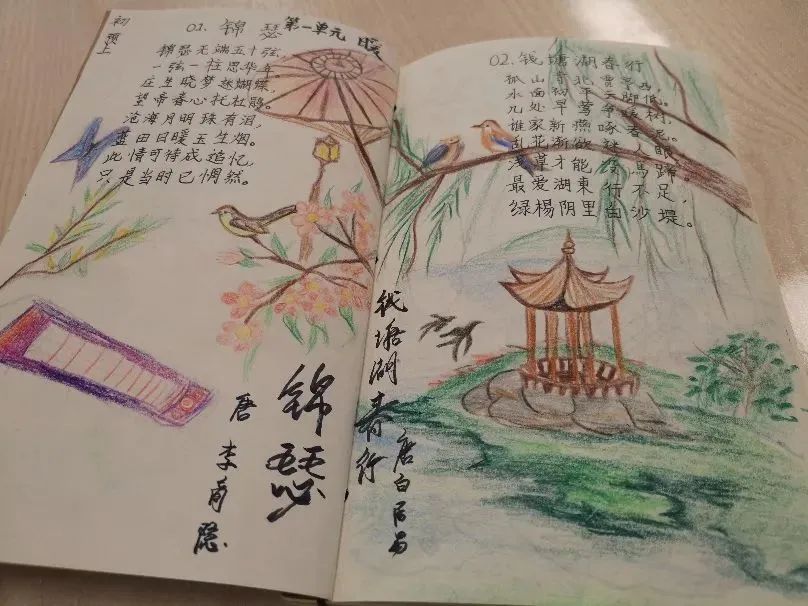 初
01. 锦 瑟 第一单元 暖
锦瑟无端五十弦,
一弦一柱思华年.
庄生晓梦迷蝴蝶,
望帝春心托杜鹃。
沧海月明珠有泪,
蓝田日暖玉生烟。
此情可待成追忆,
只是当时已惘然。
锦瑟
唐 李商隐
02. 钱塘湖春行
孤山寺北贾亭西,
水面初平云脚低。
几处早莺争暖树,
谁家新燕啄春泥。
乱花渐欲迷人眼,
浅草才能没馬蹄。
最爱湖東行不足,
绿楊阴里白沙堤。
钱塘湖春行
唐白居易